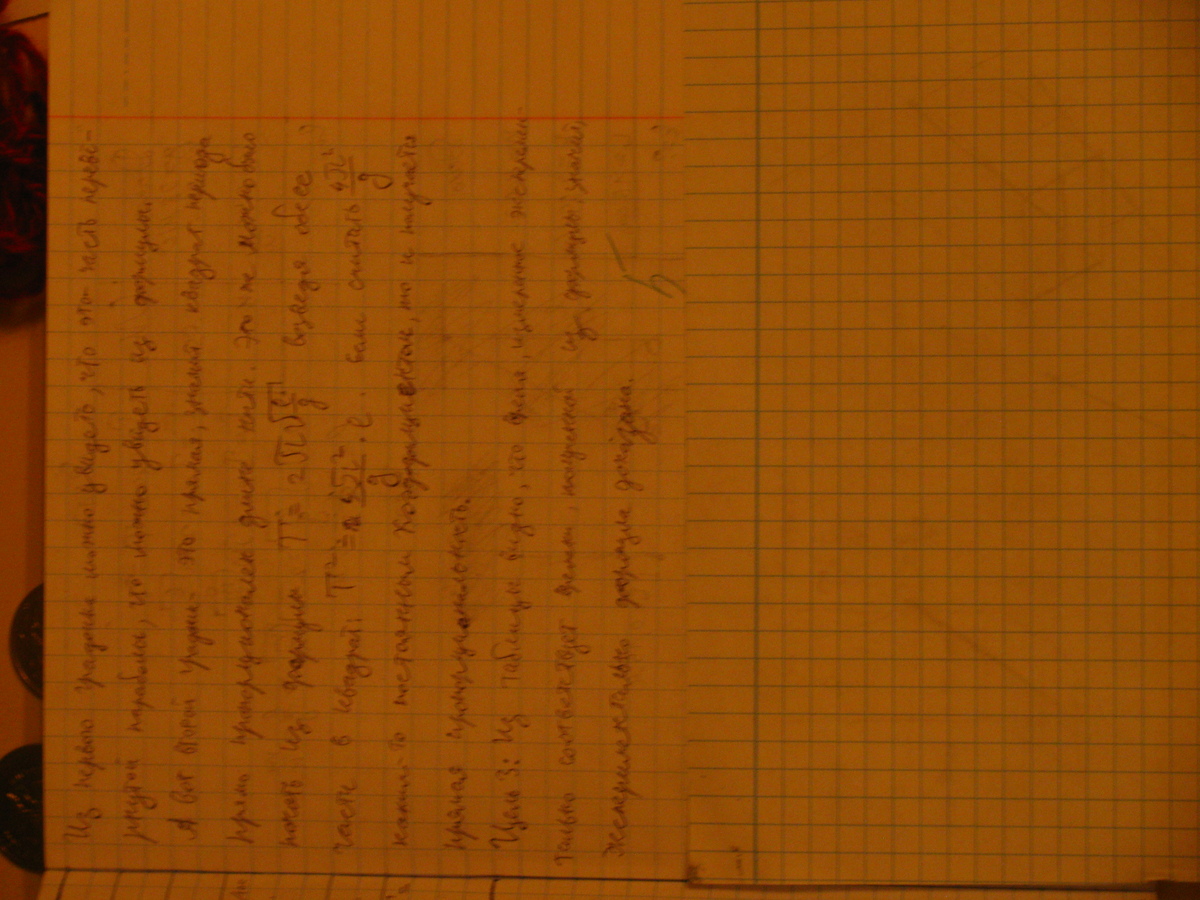 Из первого графика можно увидеть, что это часть перевё-
рнутой параболы, что можно увидеть из формулы.
А вот второй график - это прямая, значит квадрат периода
прямо пропорционален длине нити. Это же можно было
понять из формулы T = 2π√(l/g) возведя обе её
части в квадрат: T² = 4π²/g · l. если считать 4π²/g
каким-то постоянным коэффициентом, то и получается
прямая пропорциональность.
Цель 3: Из таблицы видно, что время, измеренное эксперимен-
тально соответствует времени, полученной из формулы, значит,
экспериментально формула доказана.
5